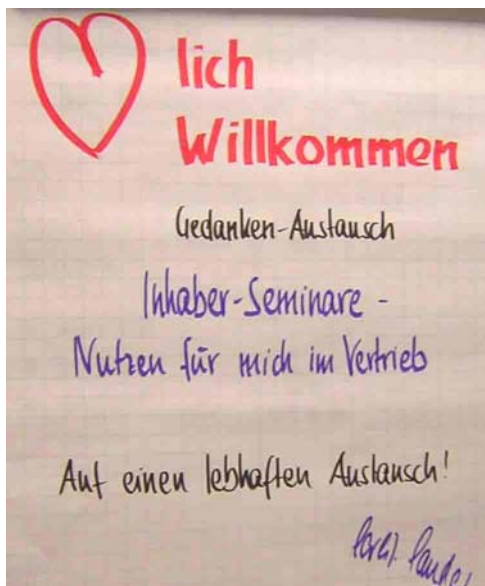 lich
Willkommen
Gedanken-Austausch
Inhaber-Seminare -
Nutzen für mich im Vertrieb
Auf einen lebhaften Austausch!